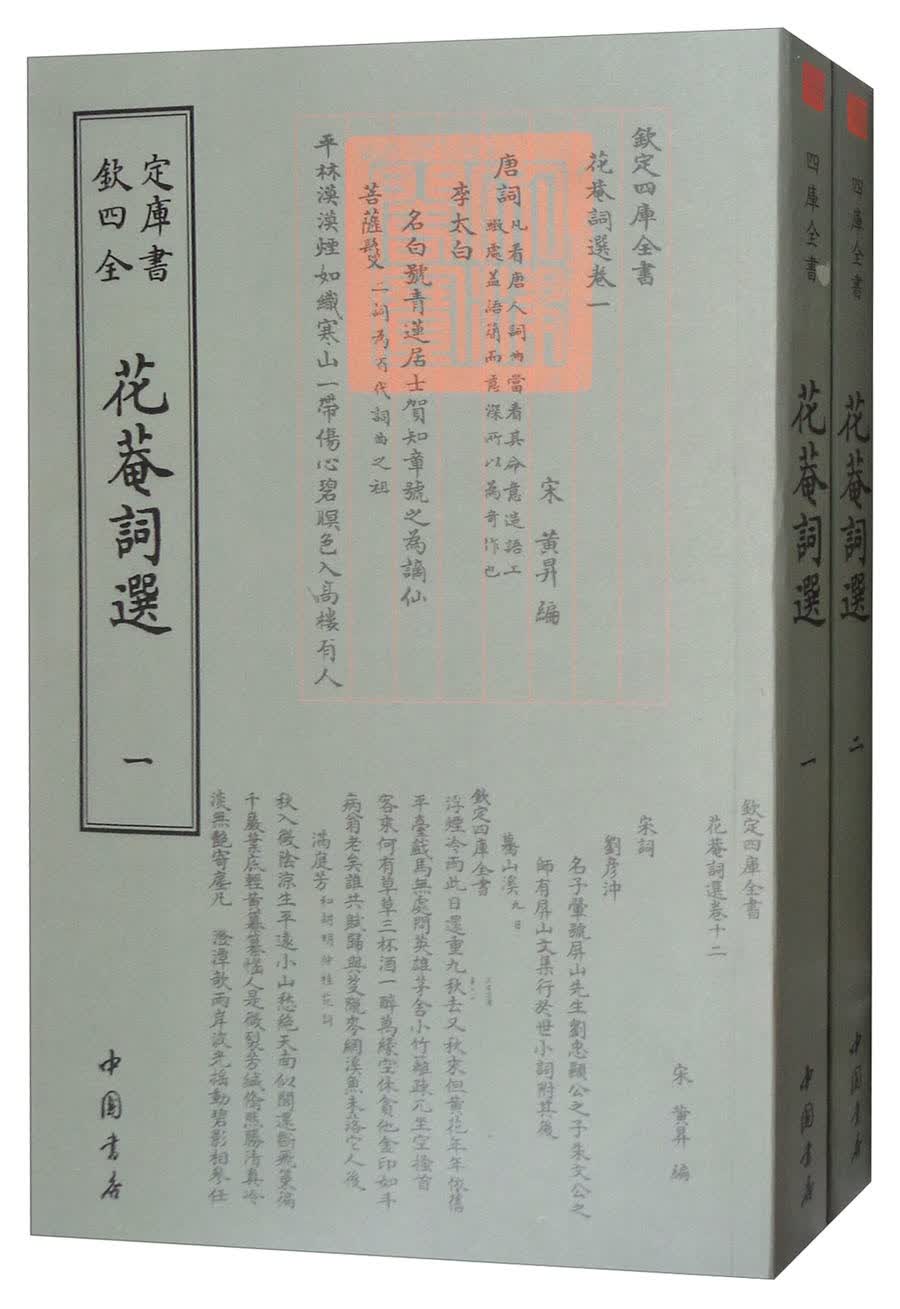 欽定四庫全書
花菴詞選
一
中国书店
欽定四庫全書
花菴詞選卷一
宋 黄昇 編
唐詞 凡看唐人詞曲當看其命意造語工
緻處蓋語簡而意深所以為奇作也
李太白
名白號青蓮居士賀知章號之為謫仙
菩薩鬘 二詞為百代詞曲之祖
平林漠漠煙如織寒山一帶傷心碧暝色入高樓有人
欽定四庫全書
花菴詞選卷十二
宋 黄昇 編
宋詞
劉彦沖
名子翬號屏山先生劉忠顯公之子朱文公之
師有屏山文集行於世小詞附其後
驀山溪 九日
欽定四庫全書
浮煙冷雨此日還重九秋去又秋來但黄花年年依舊
平臺戲馬無處問英雄茅舍小竹籬疎兀坐空搔首
客來何有草草三杯酒一醉萬緣空休貪他金印如斗
病翁老矣誰共賦歸與芟隴麥網溪魚未落它人後
滿庭芳 和胡明仲桂花詞
秋入微陰涼生平遠小山愁絶天南似聞還斷
千巖葉底輕黄
淡無艶寄 澄潭 兩岸波光摇動碧影相參任
四庫全書
花菴詞選
一
中国书店
四庫全書
花菴詞選
二
中国书店